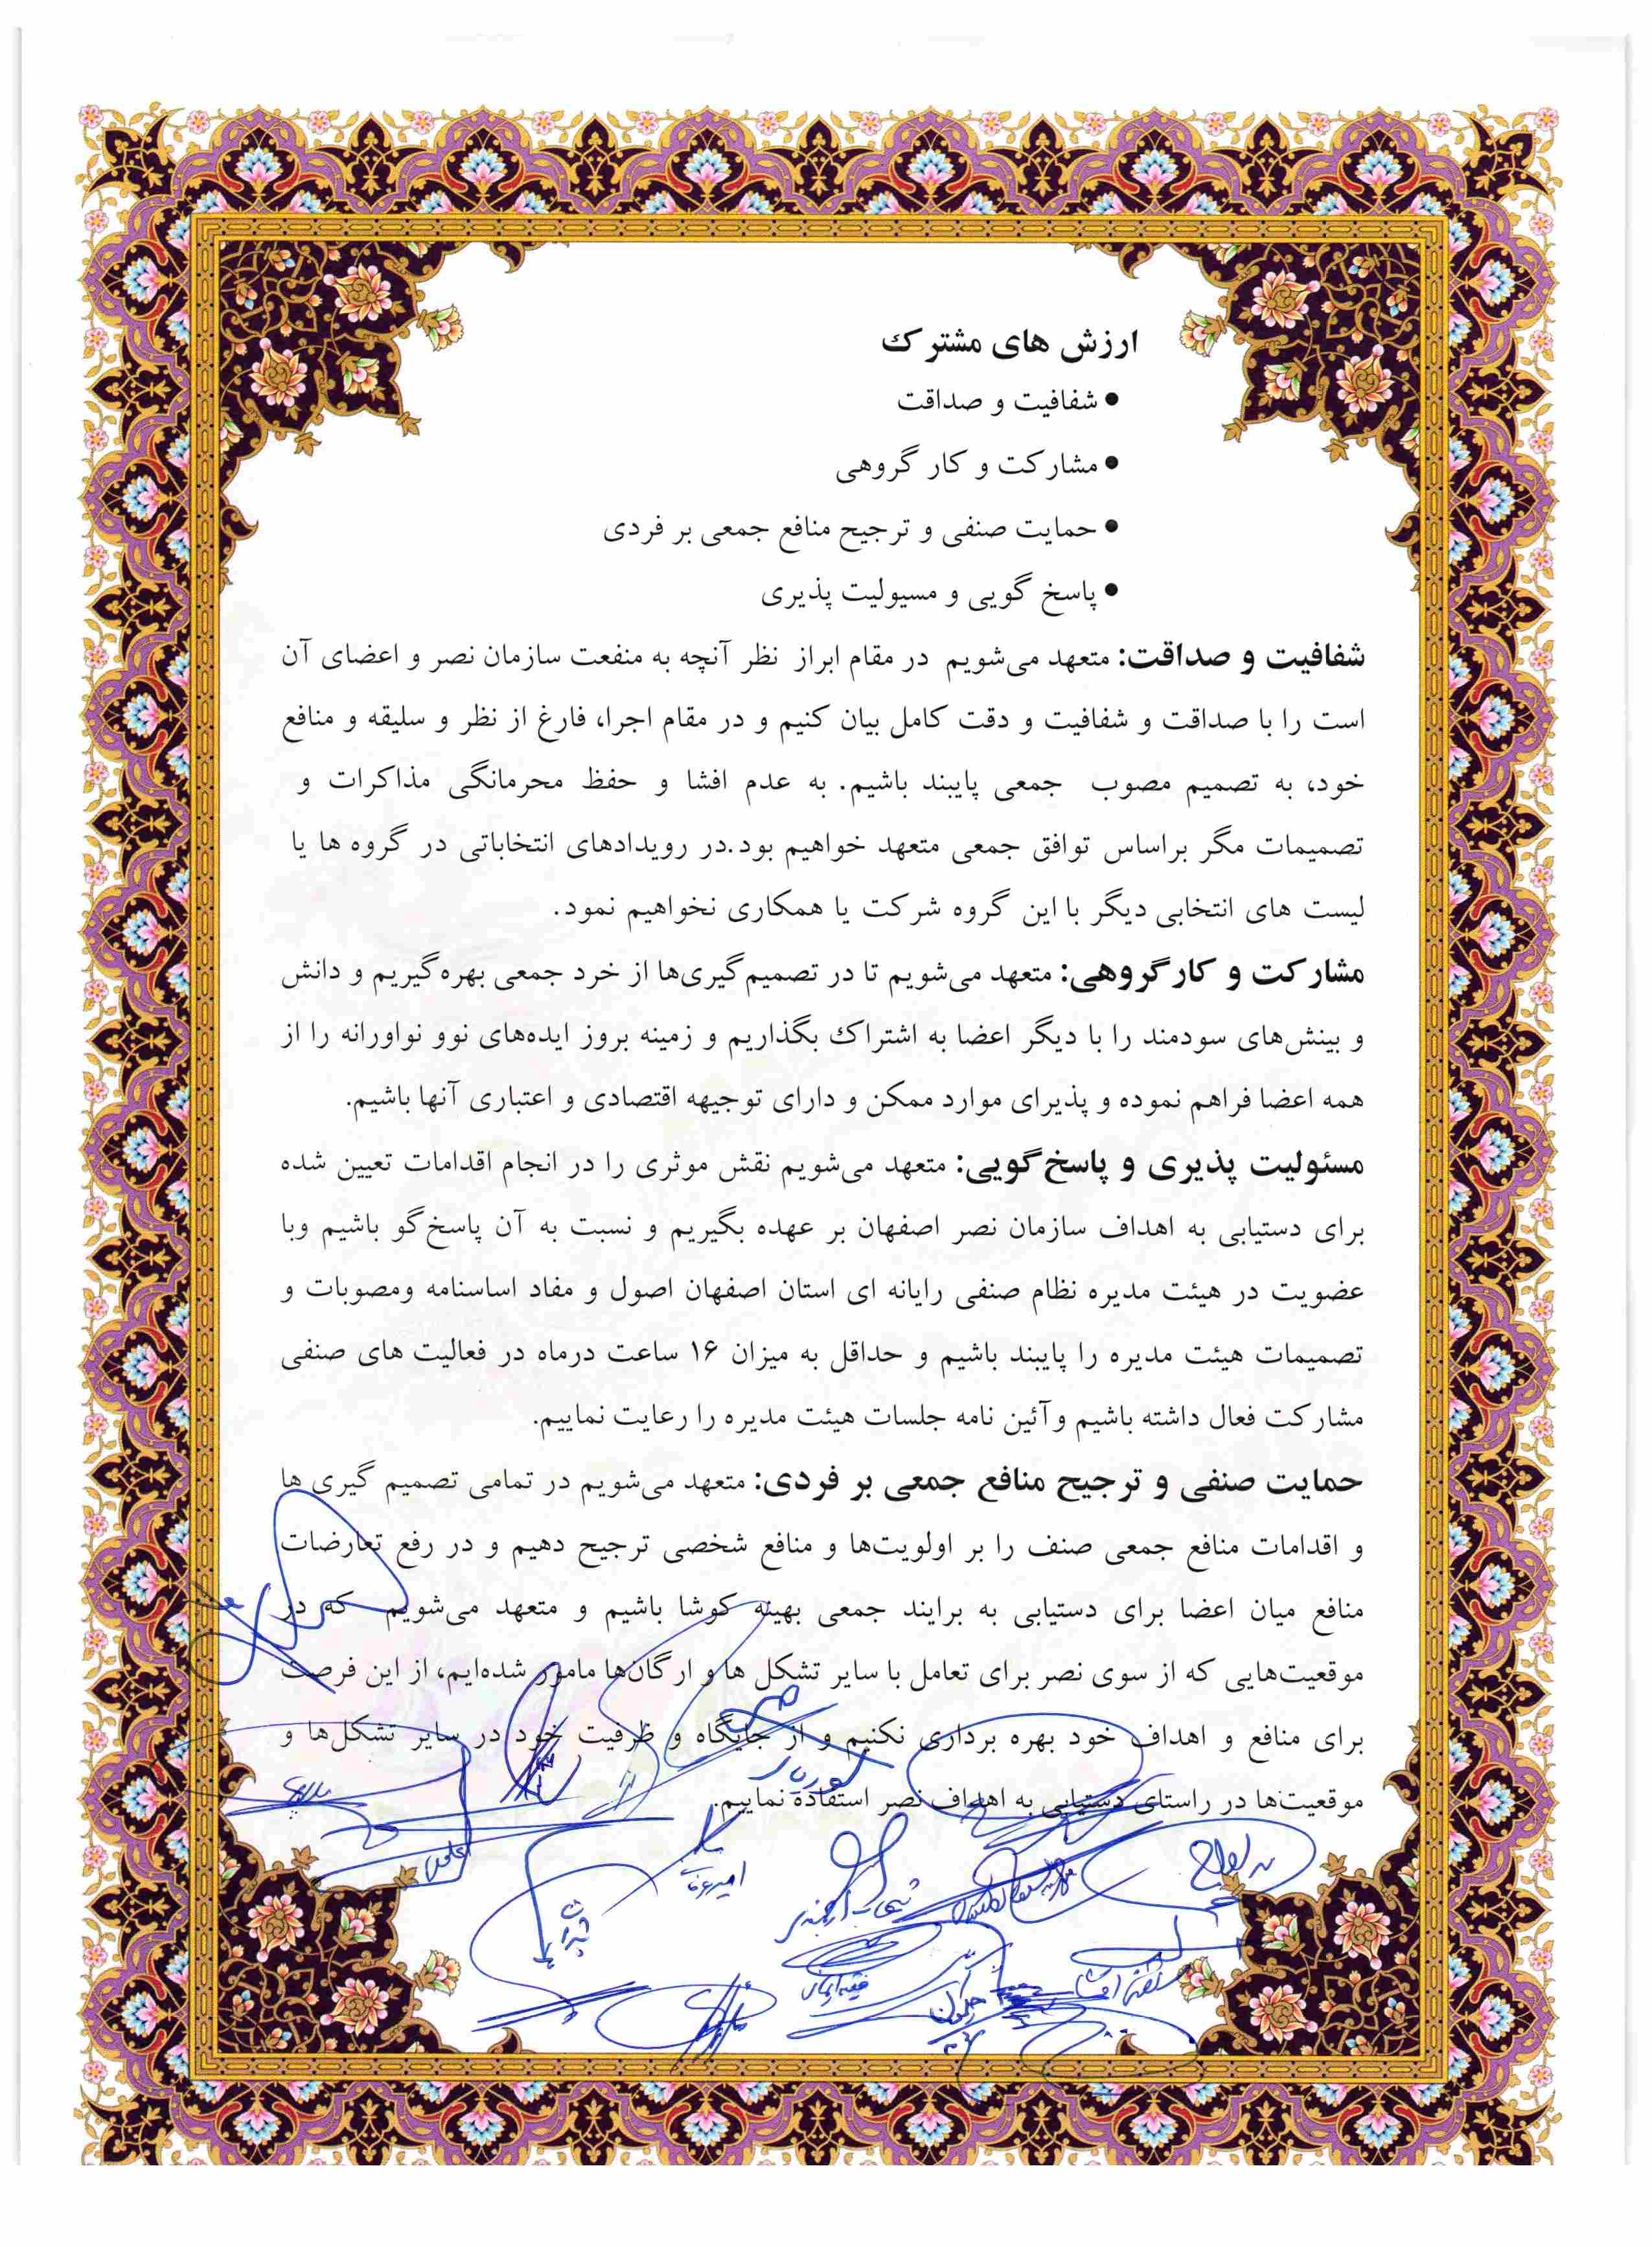 ارزش های مشترک
• شفافیت و صداقت
• مشارکت و کار گروهی
• حمایت صنفی و ترجیح منافع جمعی بر فردی
• پاسخ گویی و مسیولیت پذیری
شفافیت و صداقت: متعهد می‌شویم در مقام ابراز نظر آنچه به منفعت سازمان نصر و اعضای آن
است را با صداقت و شفافیت و دقت کامل بیان کنیم و در مقام اجرا، فارغ از نظر و سلیقه و منافع
خود، به تصمیم مصوب جمعی پایبند باشیم. به عدم افشا و حفظ محرمانگی مذاکرات و
تصمیمات مگر براساس توافق جمعی متعهد خواهیم بود.در رویدادهای انتخاباتی در گروه ها یا
لیست های انتخابی دیگر با این گروه شرکت یا همکاری نخواهیم نمود.
مشارکت و کار گروهی: متعهد می‌شویم تا در تصمیم‌گیری‌ها از خرد جمعی بهره‌گیریم و دانش
و بینش‌های سودمند را با دیگر اعضا به اشتراک بگذاریم و زمینه بروز ایده‌های نوو نواورانه را از
همه اعضا فراهم نموده و پذیرای موارد ممکن و دارای توجیهه اقتصادی و اعتباری آنها باشیم.
مسئولیت پذیری و پاسخ‌گویی: متعهد می‌شویم نقش موثری را در انجام اقدامات تعیین شده
برای دستیابی به اهداف سازمان نصر اصفهان بر عهده بگیریم و نسبت به آن پاسخ‌گو باشیم وبا
عضویت در هیئت مدیره نظام صنفی رایانه ای استان اصفهان اصول و مفاد اساسنامه ومصوبات و
تصمیمات هیئت مدیره را پایبند باشیم و حداقل به میزان ۱۶ ساعت درماه در فعالیت های صنفی
مشارکت فعال داشته باشیم وآئین نامه جلسات هیئت مدیره را رعایت نماییم.
حمایت صنفی و ترجیح منافع جمعی بر فردی: متعهد می‌شویم در تمامی تصمیم گیری ها
و اقدامات منافع جمعی صنف را بر اولویت‌ها و منافع شخصی ترجیح دهیم و در رفع تعارضات
منافع میان اعضا برای دستیابی به برایند جمعی بهینه کوشا باشیم و متعهد می‌شویم که در
موقعیت‌هایی که از سوی نصر برای تعامل با سایر تشکل ها و ارگان‌ها مامور شده‌ایم، از این فرصت
برای منافع و اهداف خود بهره برداری نکنیم و از جایگاه و ظرفیت خود در سایر تشکل‌ها و
موقعیت‌ها در راستای دستیابی به اهداف نصر استفاده نماییم.